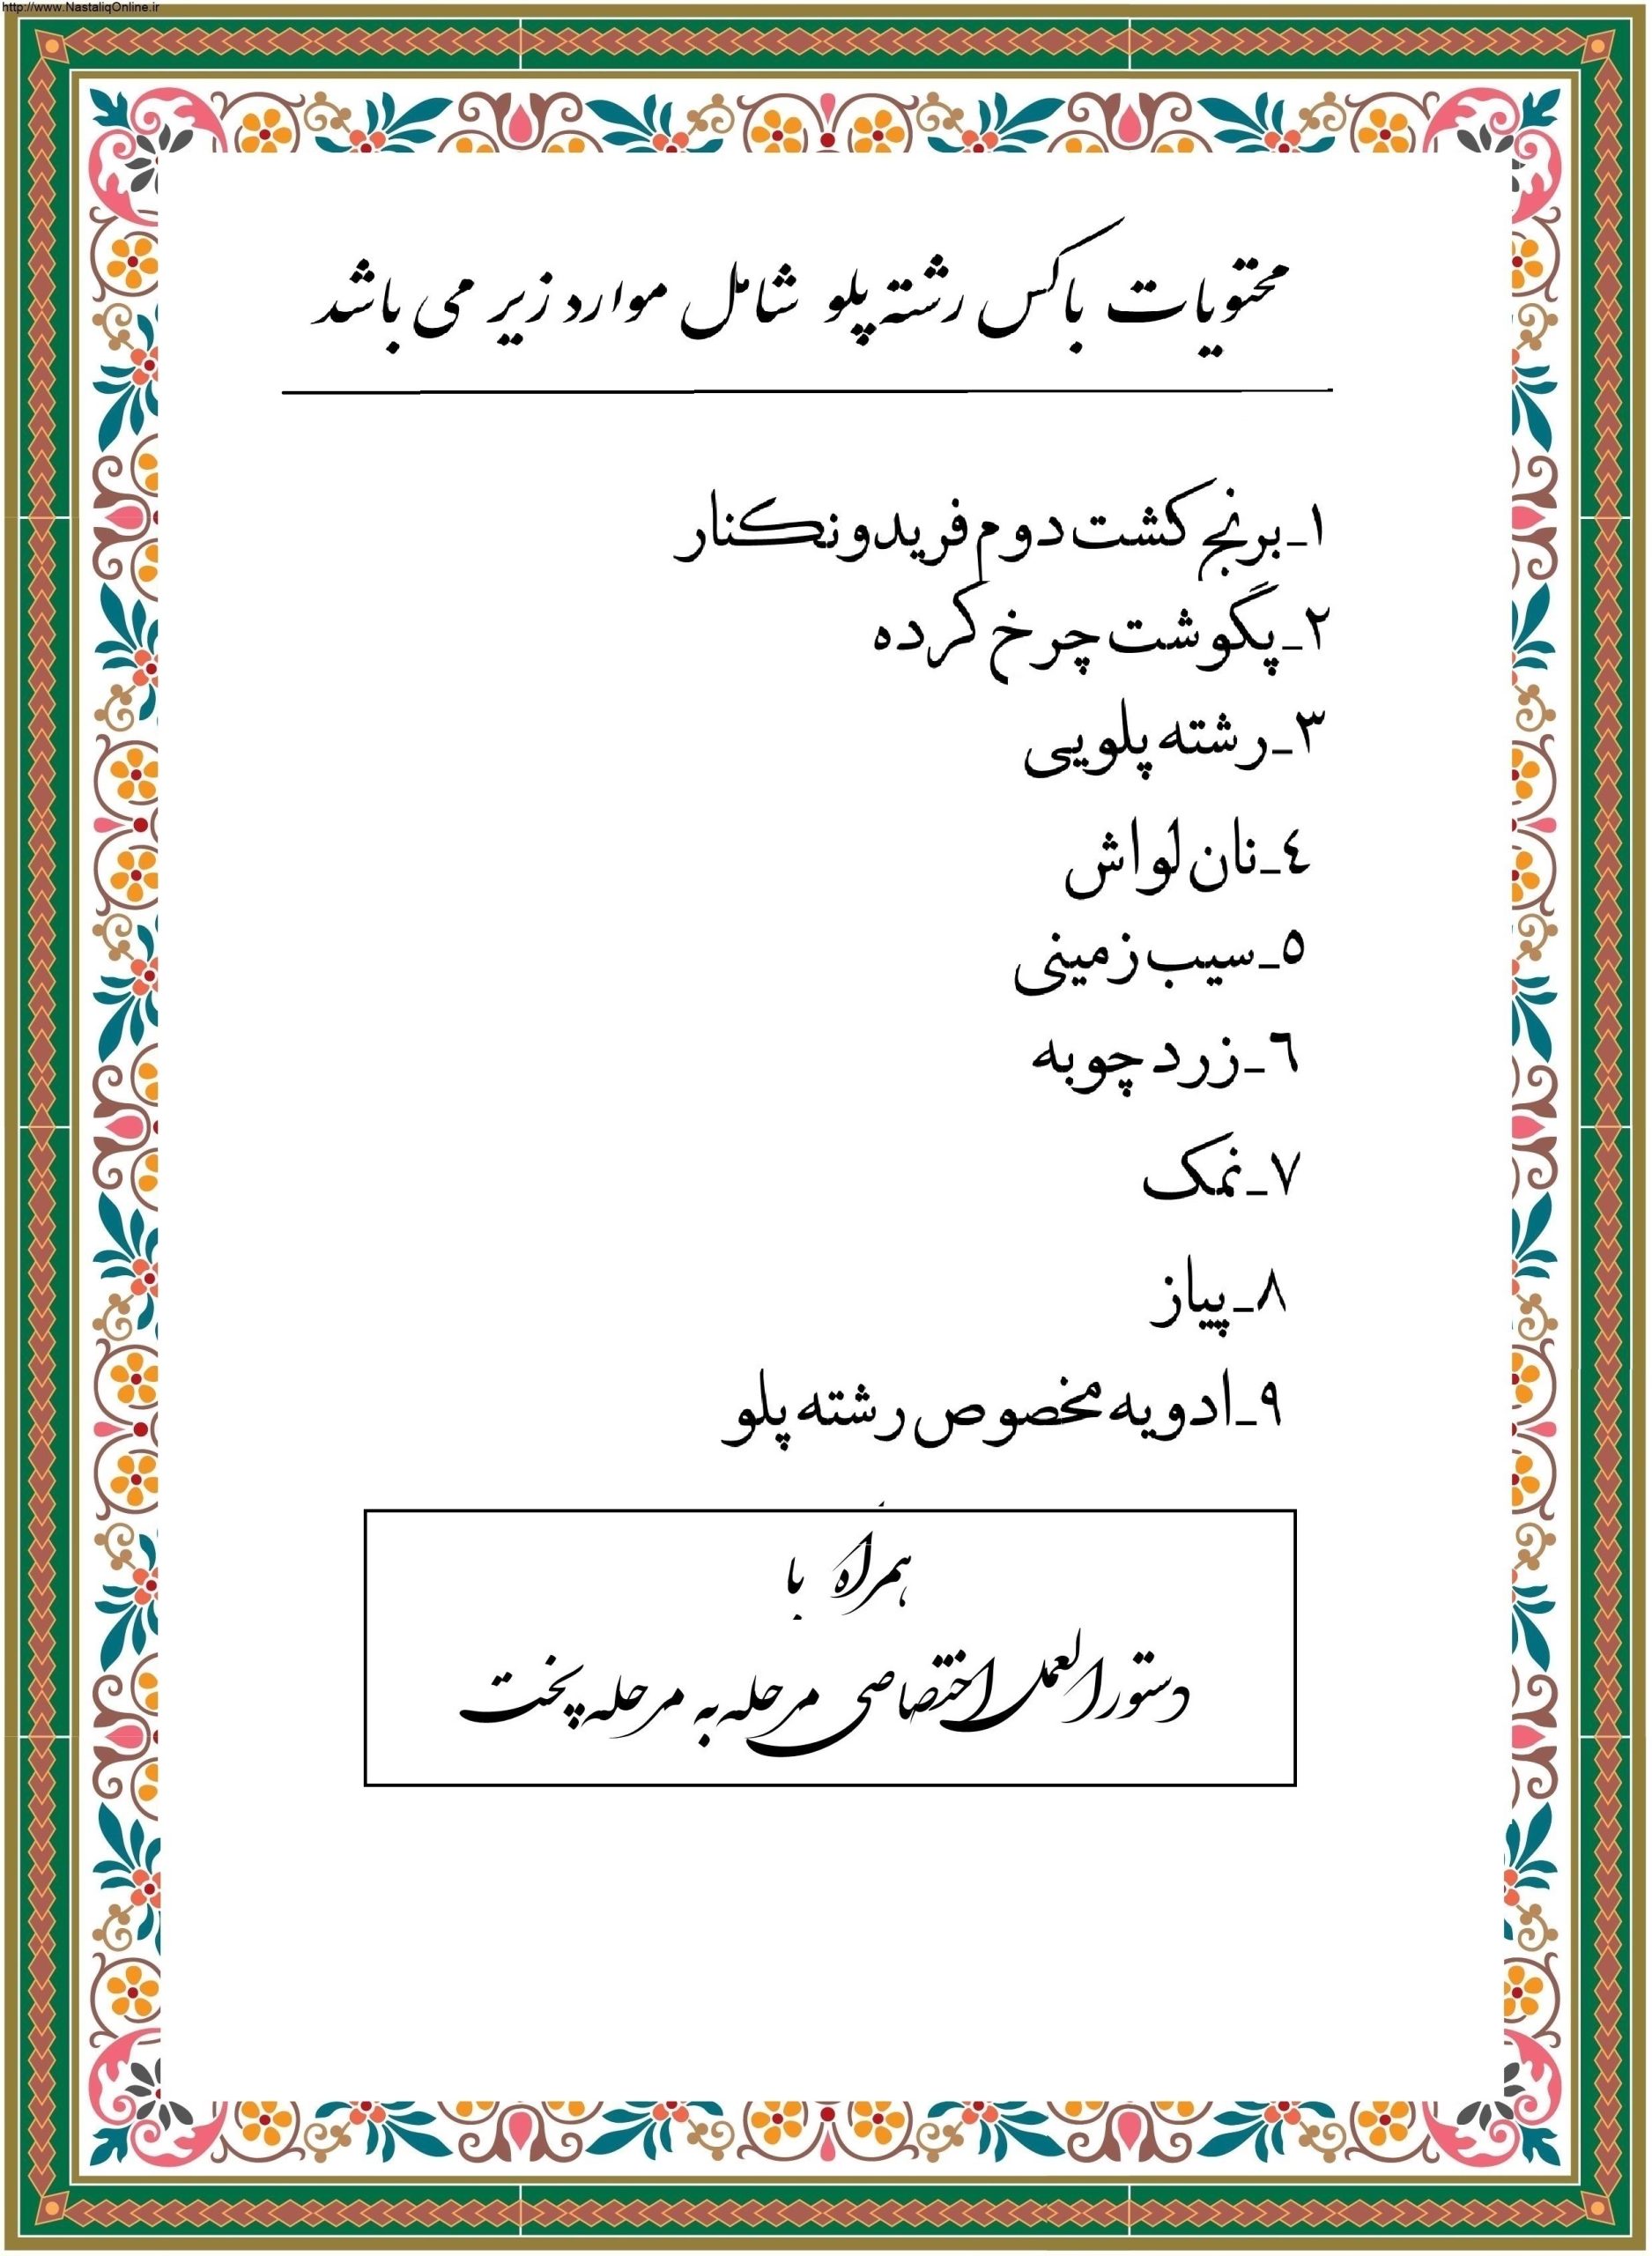 http://www.NastaliqOnline.ir
محتویات باکس رشته پلو شامل موارد زیر می باشد
۱_برنج کشت دوم فریدونکنار
۲_پگوشت چرخ کرده
۳_رشته پلویی
٤_نان لواش
٥_سیب زمینی
٦_زردچوبه
۷_نمک
۸_پیاز
۹_ادویه مخصوص رشته پلو
همراه با
دستورالعمل اختصاصی مرحله به مرحله پخت